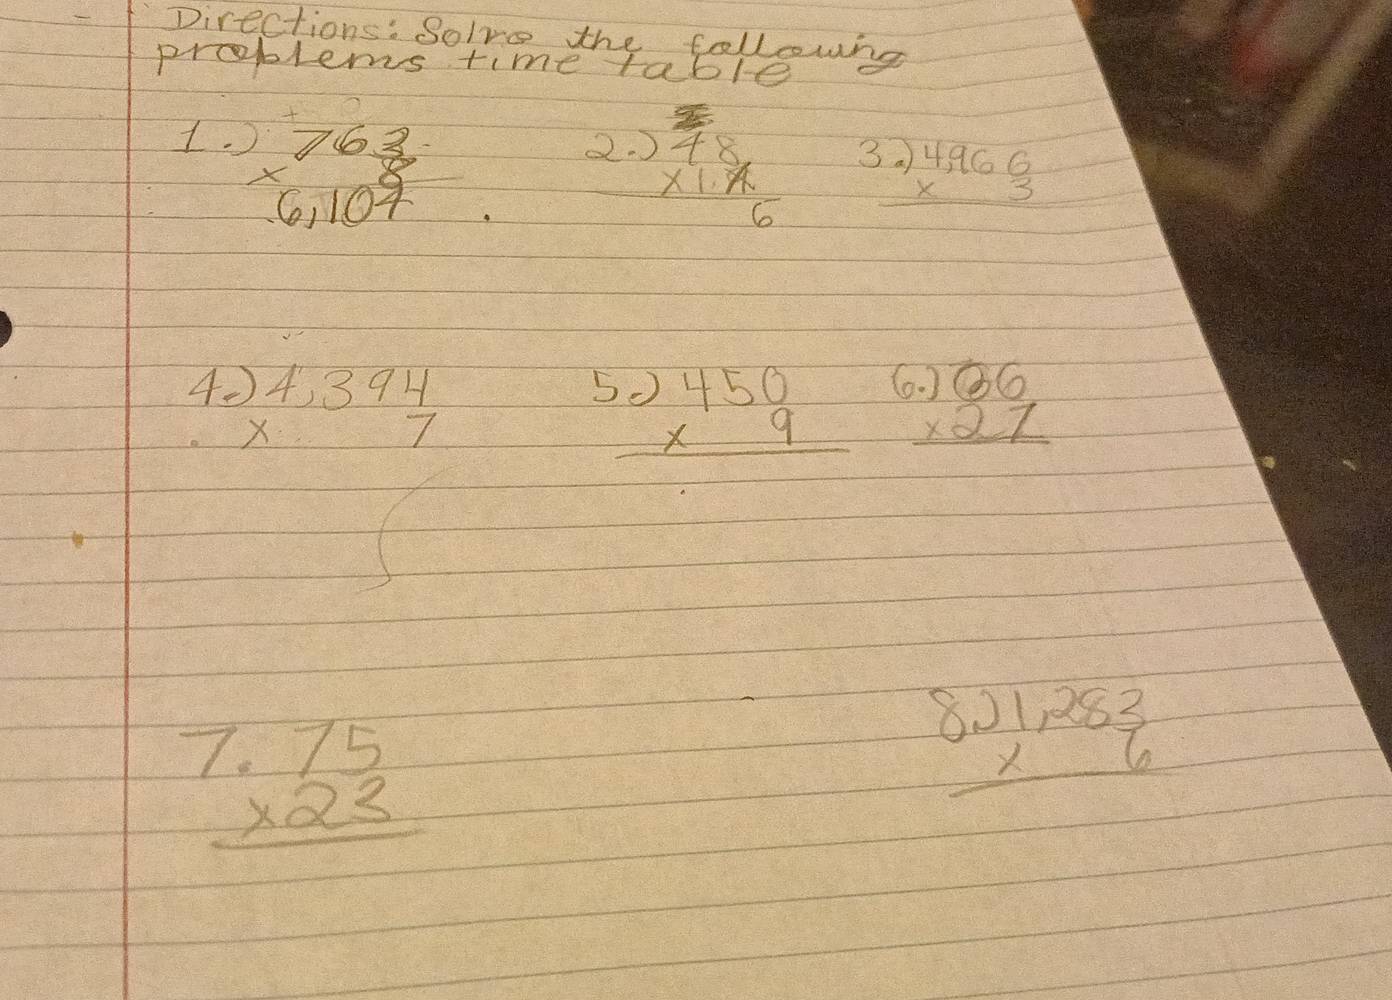 Directions: Solve the following
problems time table
1.) 763 2.) 48 3.) 4,966
x 8 x1. x 3
6,104 6
4.) 4,394 5.) 450 6.) 66
x 7 x 9 x27
7. 75 8.) 1,283
x23 x 6